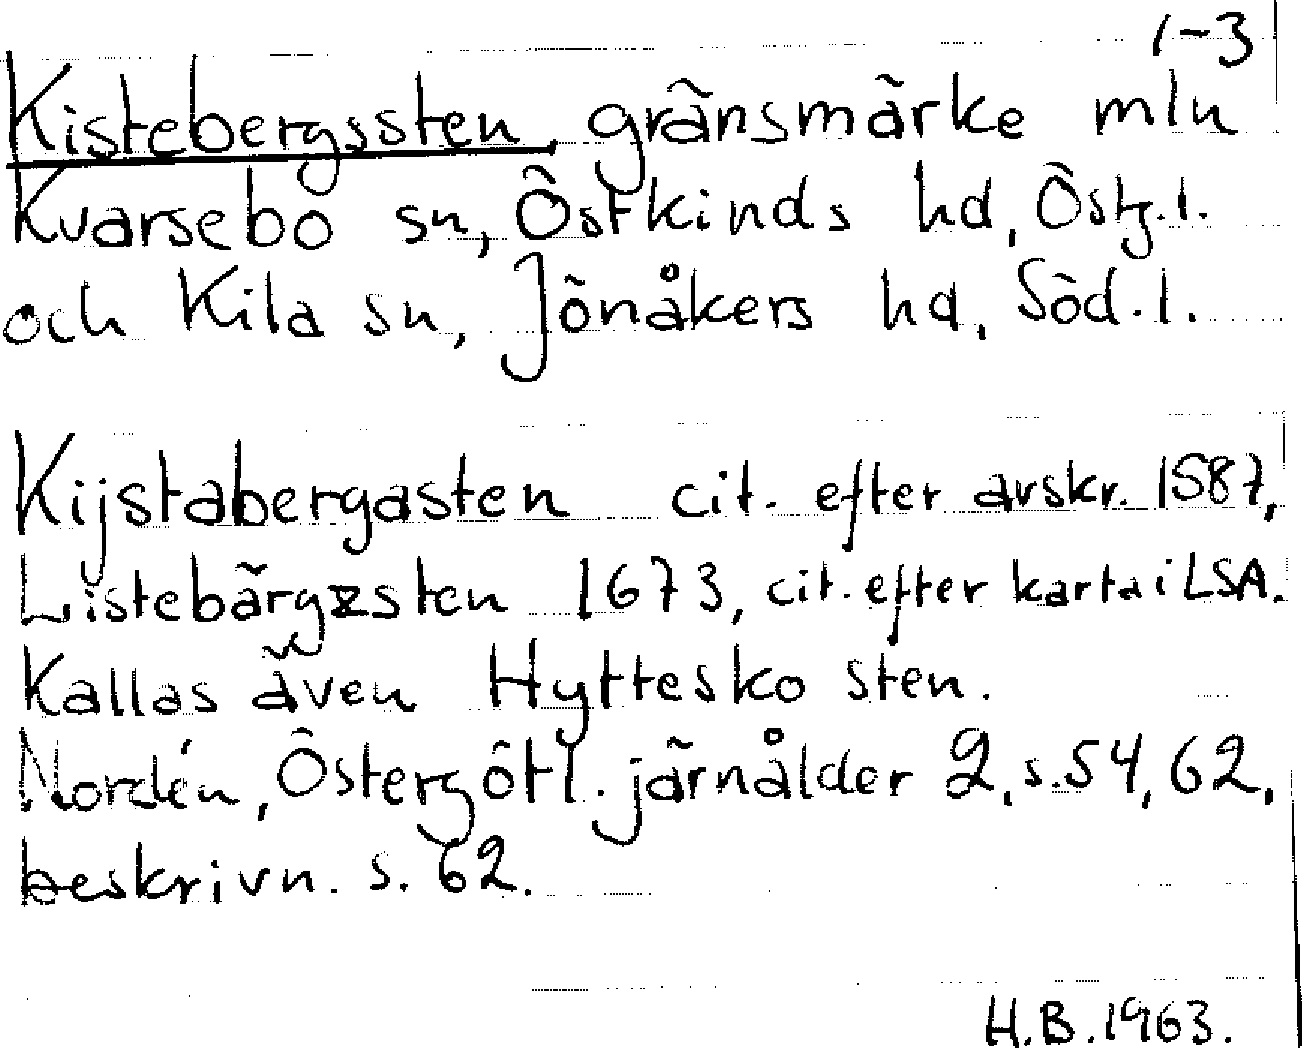 1-3
Kistebergssten, gränsmärke mln
Kvarsebo sn, Östkinds hd, Östg.l.
och Kila sn, Jönåkers hd, Söd.l.
Kijstabergasten cit. efter avskr. 1587,
Listebärgzsten 1673, cit. efter karta i LSA.
Kallas även Hyttesko sten.
Nordén, Östergötl. järnålder 2, s. 54, 62,
beskrivn. s. 62.
H.B. 1963.